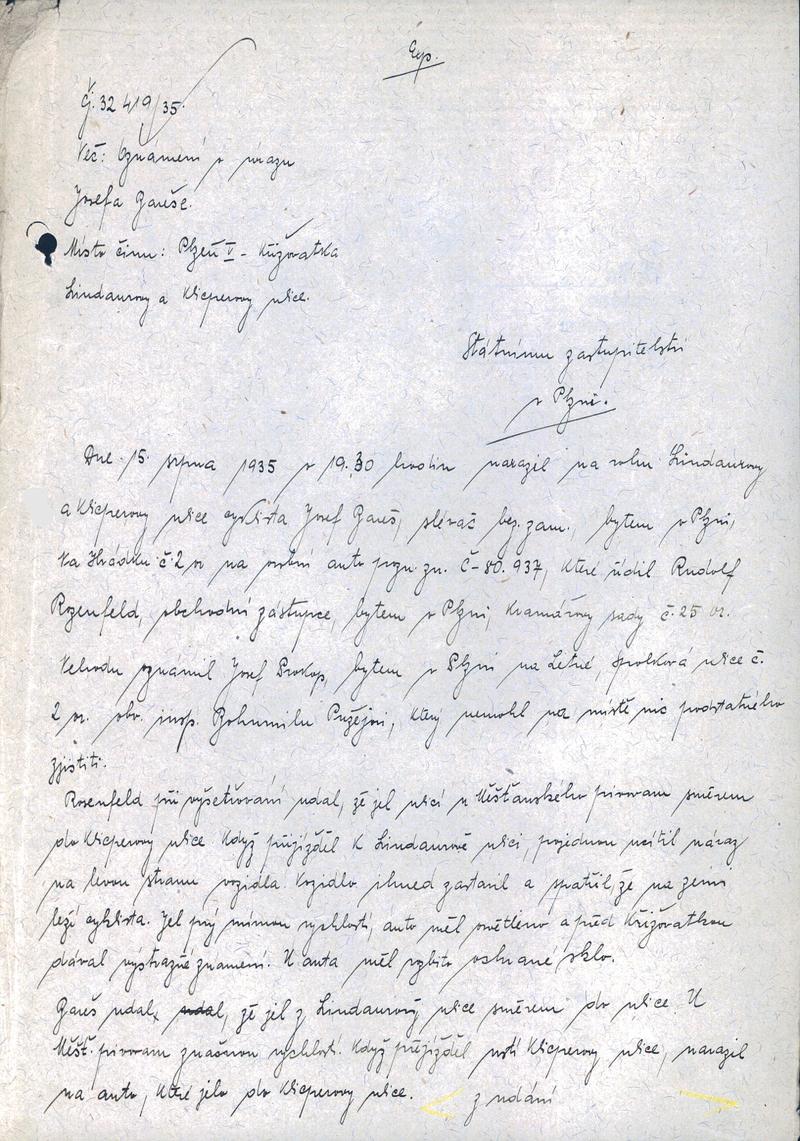 Exp.
Čj. 32 419/35.
Věc: Oznámení o úrazu
Josefa Gareše.
Místo činu: Plzeň V - Křižovatka
Lindaurovy a Klicperovy ulice.
Státnímu zastupitelství
v Plzni.
Dne 15. srpna 1935 v 19.30 hodin narazil na rohu Lindaurovy
a Klicperovy ulice cyklista Josef Gareš, slévač bez. zam., bytem v Plzni,
Na Hrádku č. 2 na osobní auto pozn. zn. Č-80.937, které řídil Rudolf
Rozenfeld, obchodní zástupce, bytem v Plzni, Kramářovy sady č. 25
Nehodu oznámil Josef Prokop, bytem v Plzni na Letné, Spolková ulice č.
2 obv. insp. Bohumilu Pužejovi, který nemohl na místě nic podstatného
zjistiti.
Rosenfeld při vyšetřování udal, že jel ulicí u Měšťanského pivovaru směrem
do Klicperovy ulice. Když přijížděl k Lindaurově ulici, pojednou ucítil náraz
na levou stranu vozidla. Vozidlo ihned zastavil a spatřil, že na zemi
leží cyklista. Jel prý mírnou rychlostí, auto měl osvětleno a před křižovatkou
dával výstražné znamení. U auta měl rozbito ochrané sklo.
Gareš udal, udal, že jel z Lindaurovy ulice směrem do ulice U
Měšť. pivovaru značnou rychlostí. Když přijížděl ústí Klicperovy ulice, narazil
na auto, které jelo do Klicperovy ulice. z udání